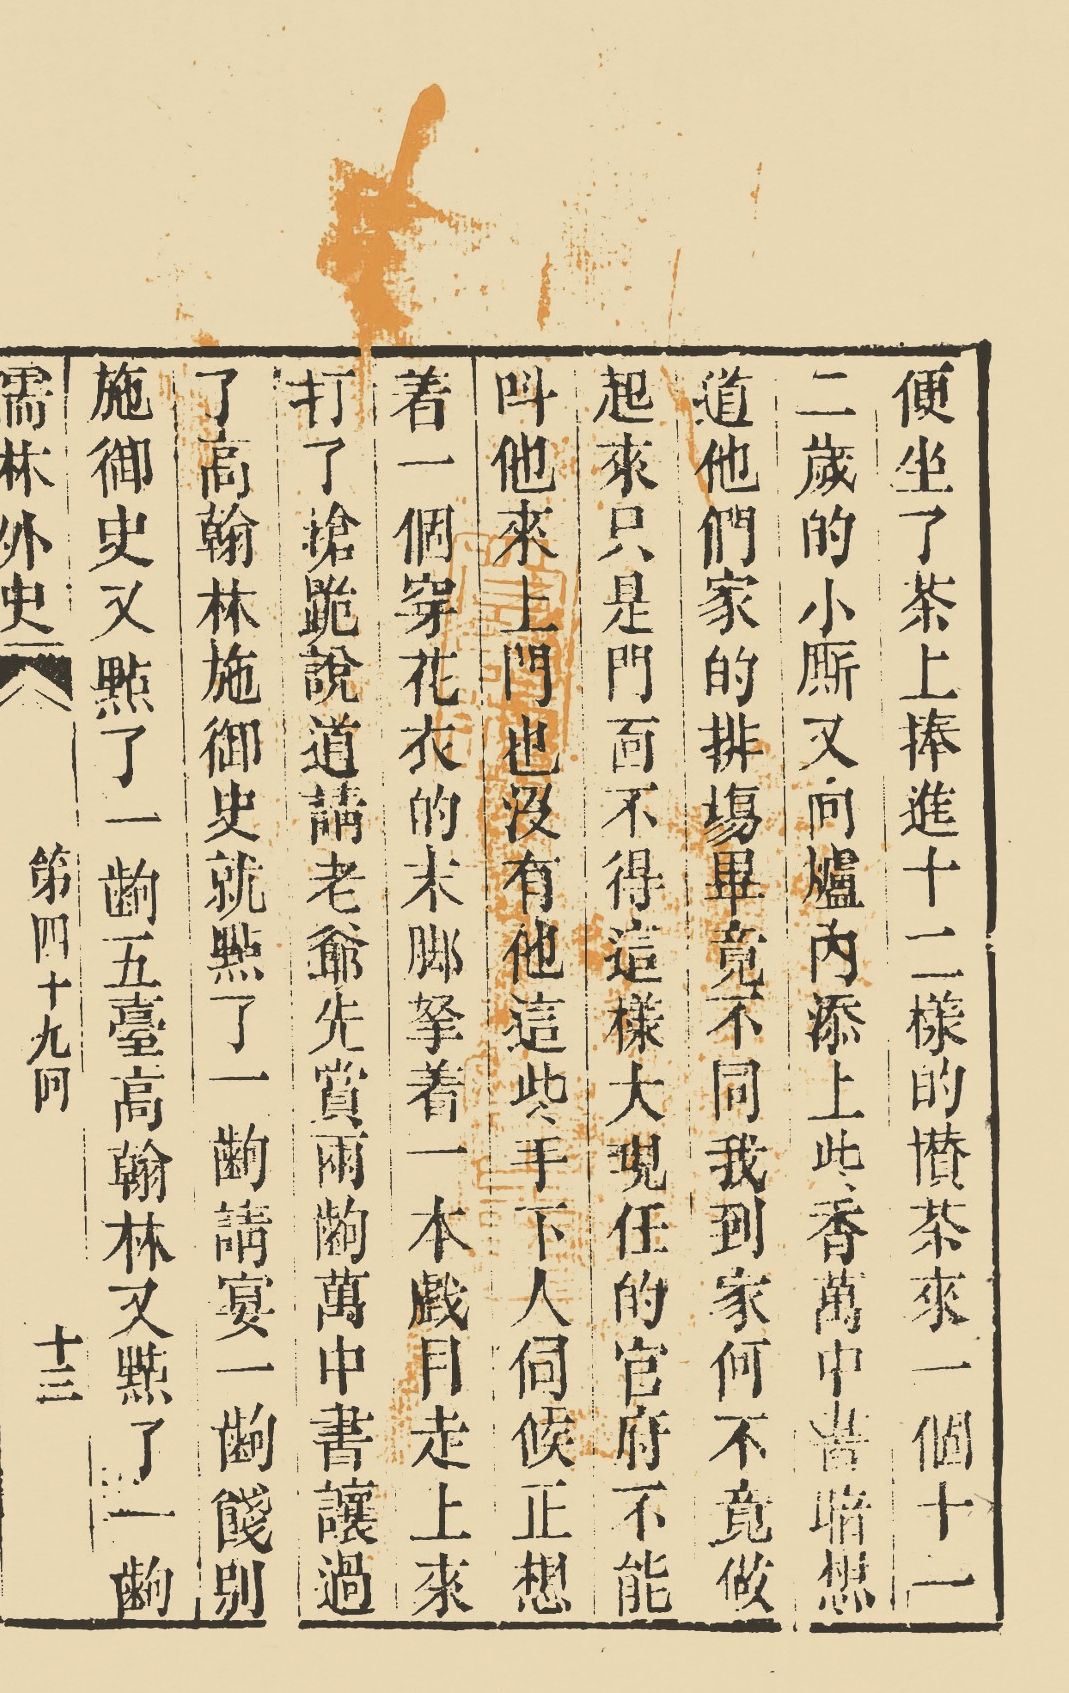 便坐了茶上捧進十二樣的攢茶來一個十一
二歲的小厮又向爐內添上些香萬中書暗想
道他們家的排塲畢竟不同我到家何不竟做
起來只是門面不得這樣大現任的官府不能
呌他來上門也沒有他這些手下人伺候正想
着一個穿花衣的末脚拏着一本戲目走上來
打了搶跪說道請老爺先賞兩齣萬中書讓過
了高翰林施御史就㸃了一齣請宴一齣餞别
施御史又㸃了一齣五臺高翰林又㸃了一齣
儒林外史 第四十九囘 十三